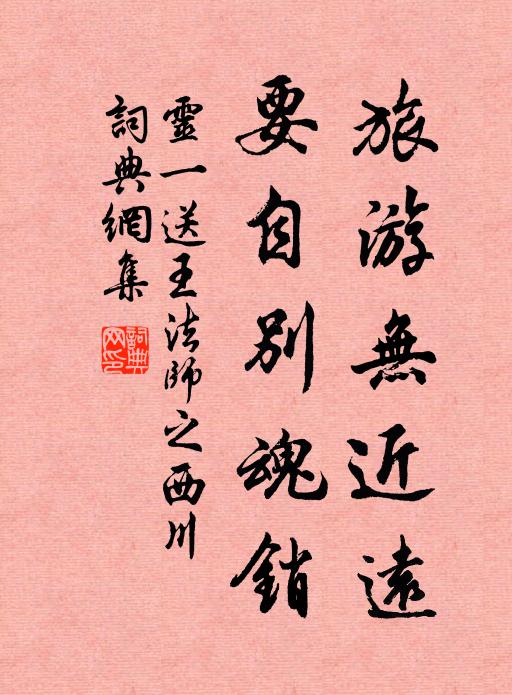 旅游無近遠
要自別魂銷
靈一送王法師之西川
詞典網集
詞典網印